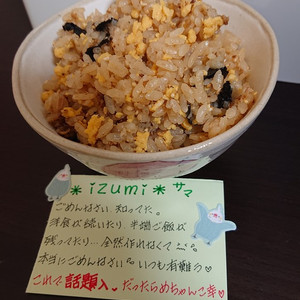 *izumi*サマ
ごめんなさい 知ってた。
洋食が続いたり 半端ご飯が
残ってたり… 全然作れなくて
本当にごめんなさい いつも有難う♡
これで話題入 だったらめちゃんこ幸♡